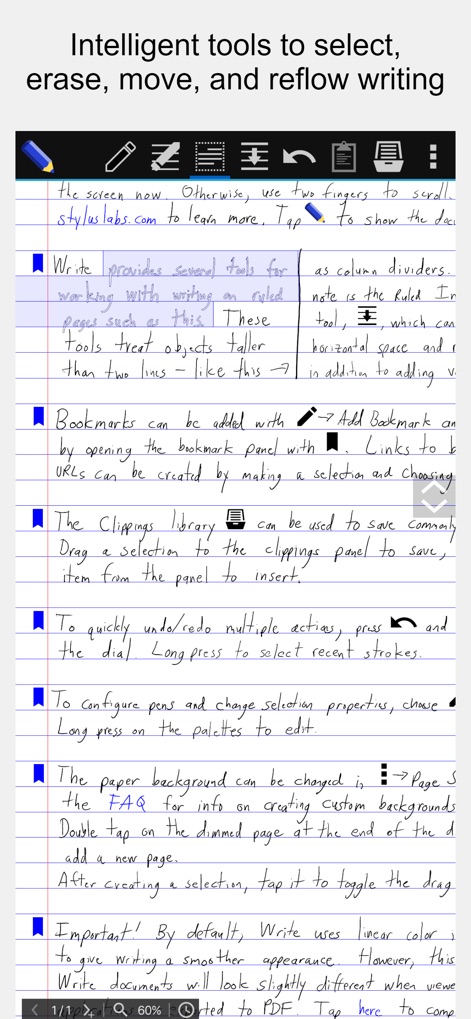 Intelligent tools to select,
erase, move, and reflow writing
the screen now. Otherwise, use two fingers to scroll.
styluslabs.com to learn more. Tap to show the doc
Write provides several tools for
working with writing on ruled
pages such as this. These
tools treat objects taller
than two lines - like this →
as column dividers.
note is the Ruled In
tool, , which can
horizontal space and r
in addition to adding v
Bookmarks can be added with → Add Bookmark an
by opening the bookmark panel with . Links to b
URLs can be created by making a selection and choosing
The Clippings library can be used to save commonly
Drag a selection to the clippings panel to save,
item from the panel to insert.
To quickly undo/redo multiple actions, press and
the dial. Long press to select recent strokes.
To configure pens and change selection properties, choose
Long press on the palettes to edit.
The paper background can be changed in → Page S
the FAQ for info on creating custom backgrounds
Double tap on the dimmed page at the end of the d
add a new page.
After creating a selection, tap it to toggle the drag
Important! By default, Write uses linear color i
to give writing a smoother appearance. However, this
Write documents will look slightly different when viewe
rted to PDF. Tap here to comp
1/1
60%